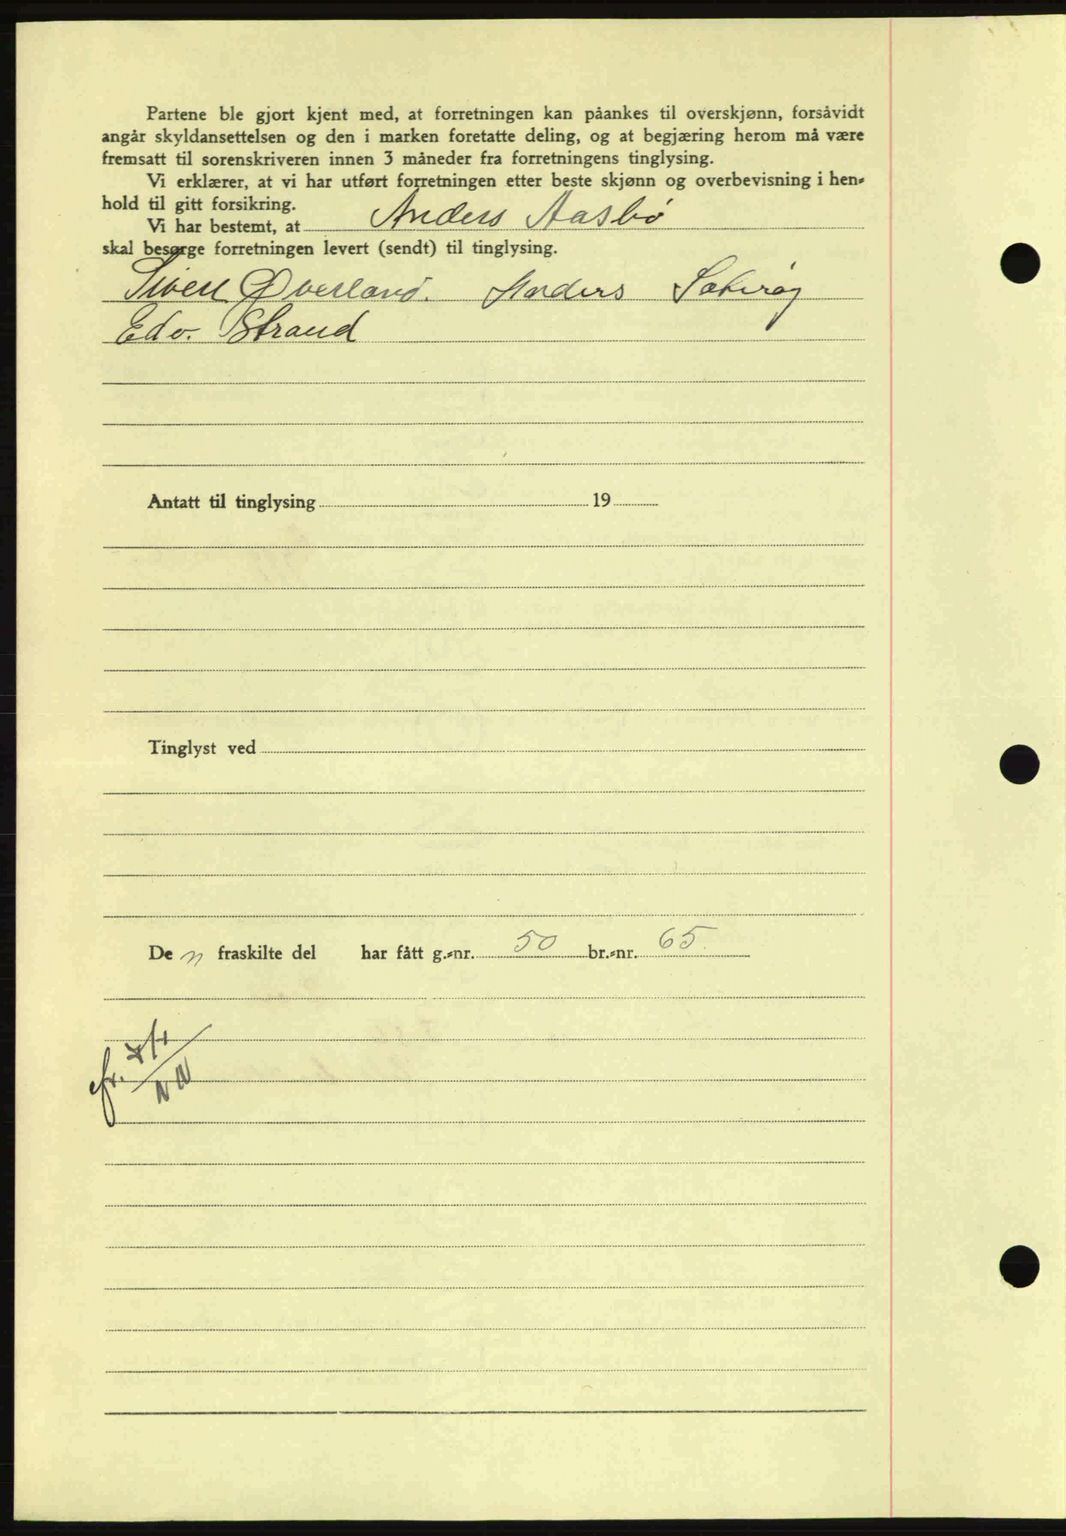 Partene ble gjort kjent med, at forretningen kan påankes til overskjønn, forsåvidt
angår skyldansettelsen og den i marken foretatte deling, og at begjæring herom må være
fremsatt til sorenskriveren innen 3 måneder fra forretningens tinglysing.
Vi erklærer, at vi har utført forretningen etter beste skjønn og overbevisning i hen-
hold til gitt forsikring.
Vi har bestemt, at Anders Aasbø
skal besørge forretningen levert (sendt) til tinglysing.
Sivert Øverland. Anders
Edv. Strand
Antatt til tinglysing 19
Tinglyst ved
De n fraskilte del har fått g.-nr. 50 br.-nr. 65.
cfr.
NN